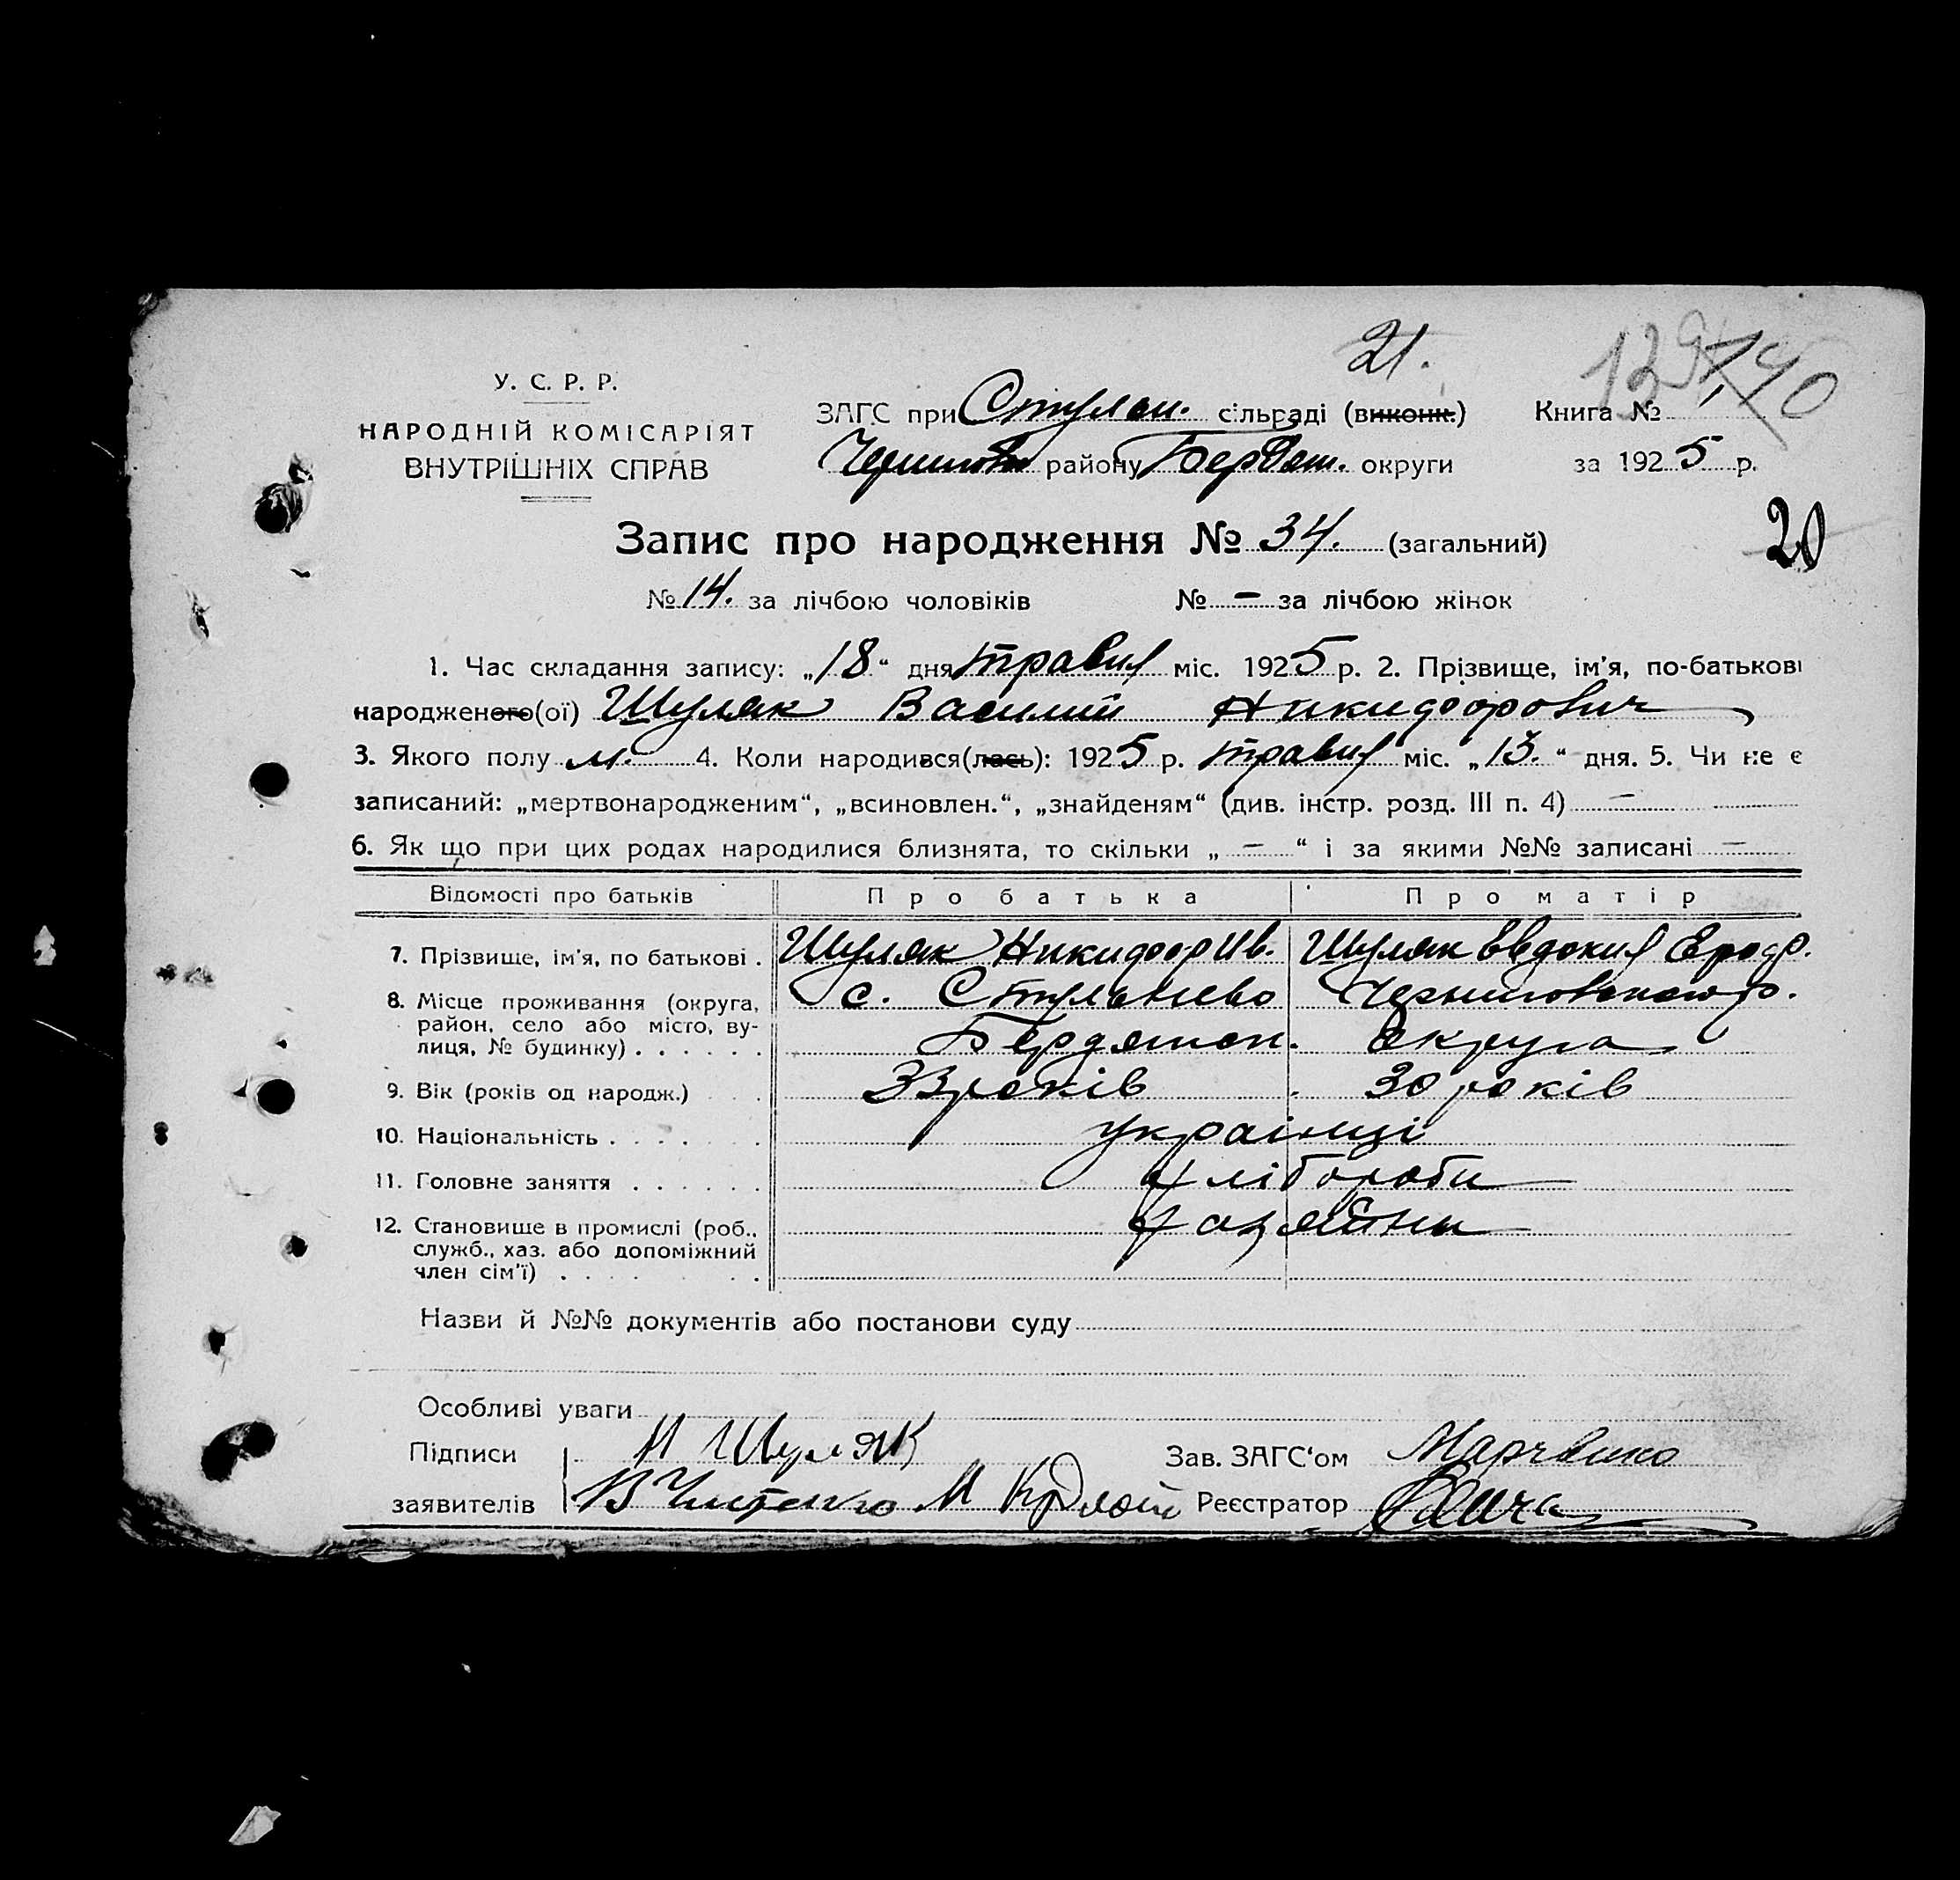 21.
139 140
У. С. Р. Р.
НАРОДНІЙ КОМІСАРІЯТ
ВНУТРІШНІХ СПРАВ
ЗАГС при Стульн. сільраді (виконк.) Книга №
району Бердян. округи за 1925 р.
20
Запис про народження № 34. (загальний)
№ 14. за лічбою чоловіків № — за лічбою жінок
1. Час складання запису: „18“ дня травня міс. 1925 р. 2. Прізвище, ім'я, по-батькові
народженого(ої) Шуляк Василий Никидфорович
3. Якого полу м. 4. Коли народився(лась): 1925 р. травня міс. „13.“ дня. 5. Чи не є
записаний: „мертвонародженим“, „всиновлен.“, „знайденям“ (див. інстр. розд. III п. 4) —
6. Як що при цих родах народилися близнята, то скільки „ — “ і за якими №№ записані —
Відомості про батьків Про батька Про матір
7. Прізвище, ім'я, по батькові . Шуляк Никидфор Ив. Шуляк Евдокия
8. Місце проживання (округа, район, село або місто, ву- лиця, № будинку) . . . . . . с. Стульнево Черниговского р.
Бердянск. округа
9. Вік (років од народж.) 33 років 30 років
10. Національність . . . . українці
11. Головне заняття . . . . . . хлібороби
12. Становище в промислі (роб., служб., хаз. або допоміжний член сім'ї) . хазяїни
Назви й №№ документів або постанови суду
Особливі уваги
Підписи Н Шуляк Зав. ЗАГС'ом Марченко
заявителів В М Реєстратор